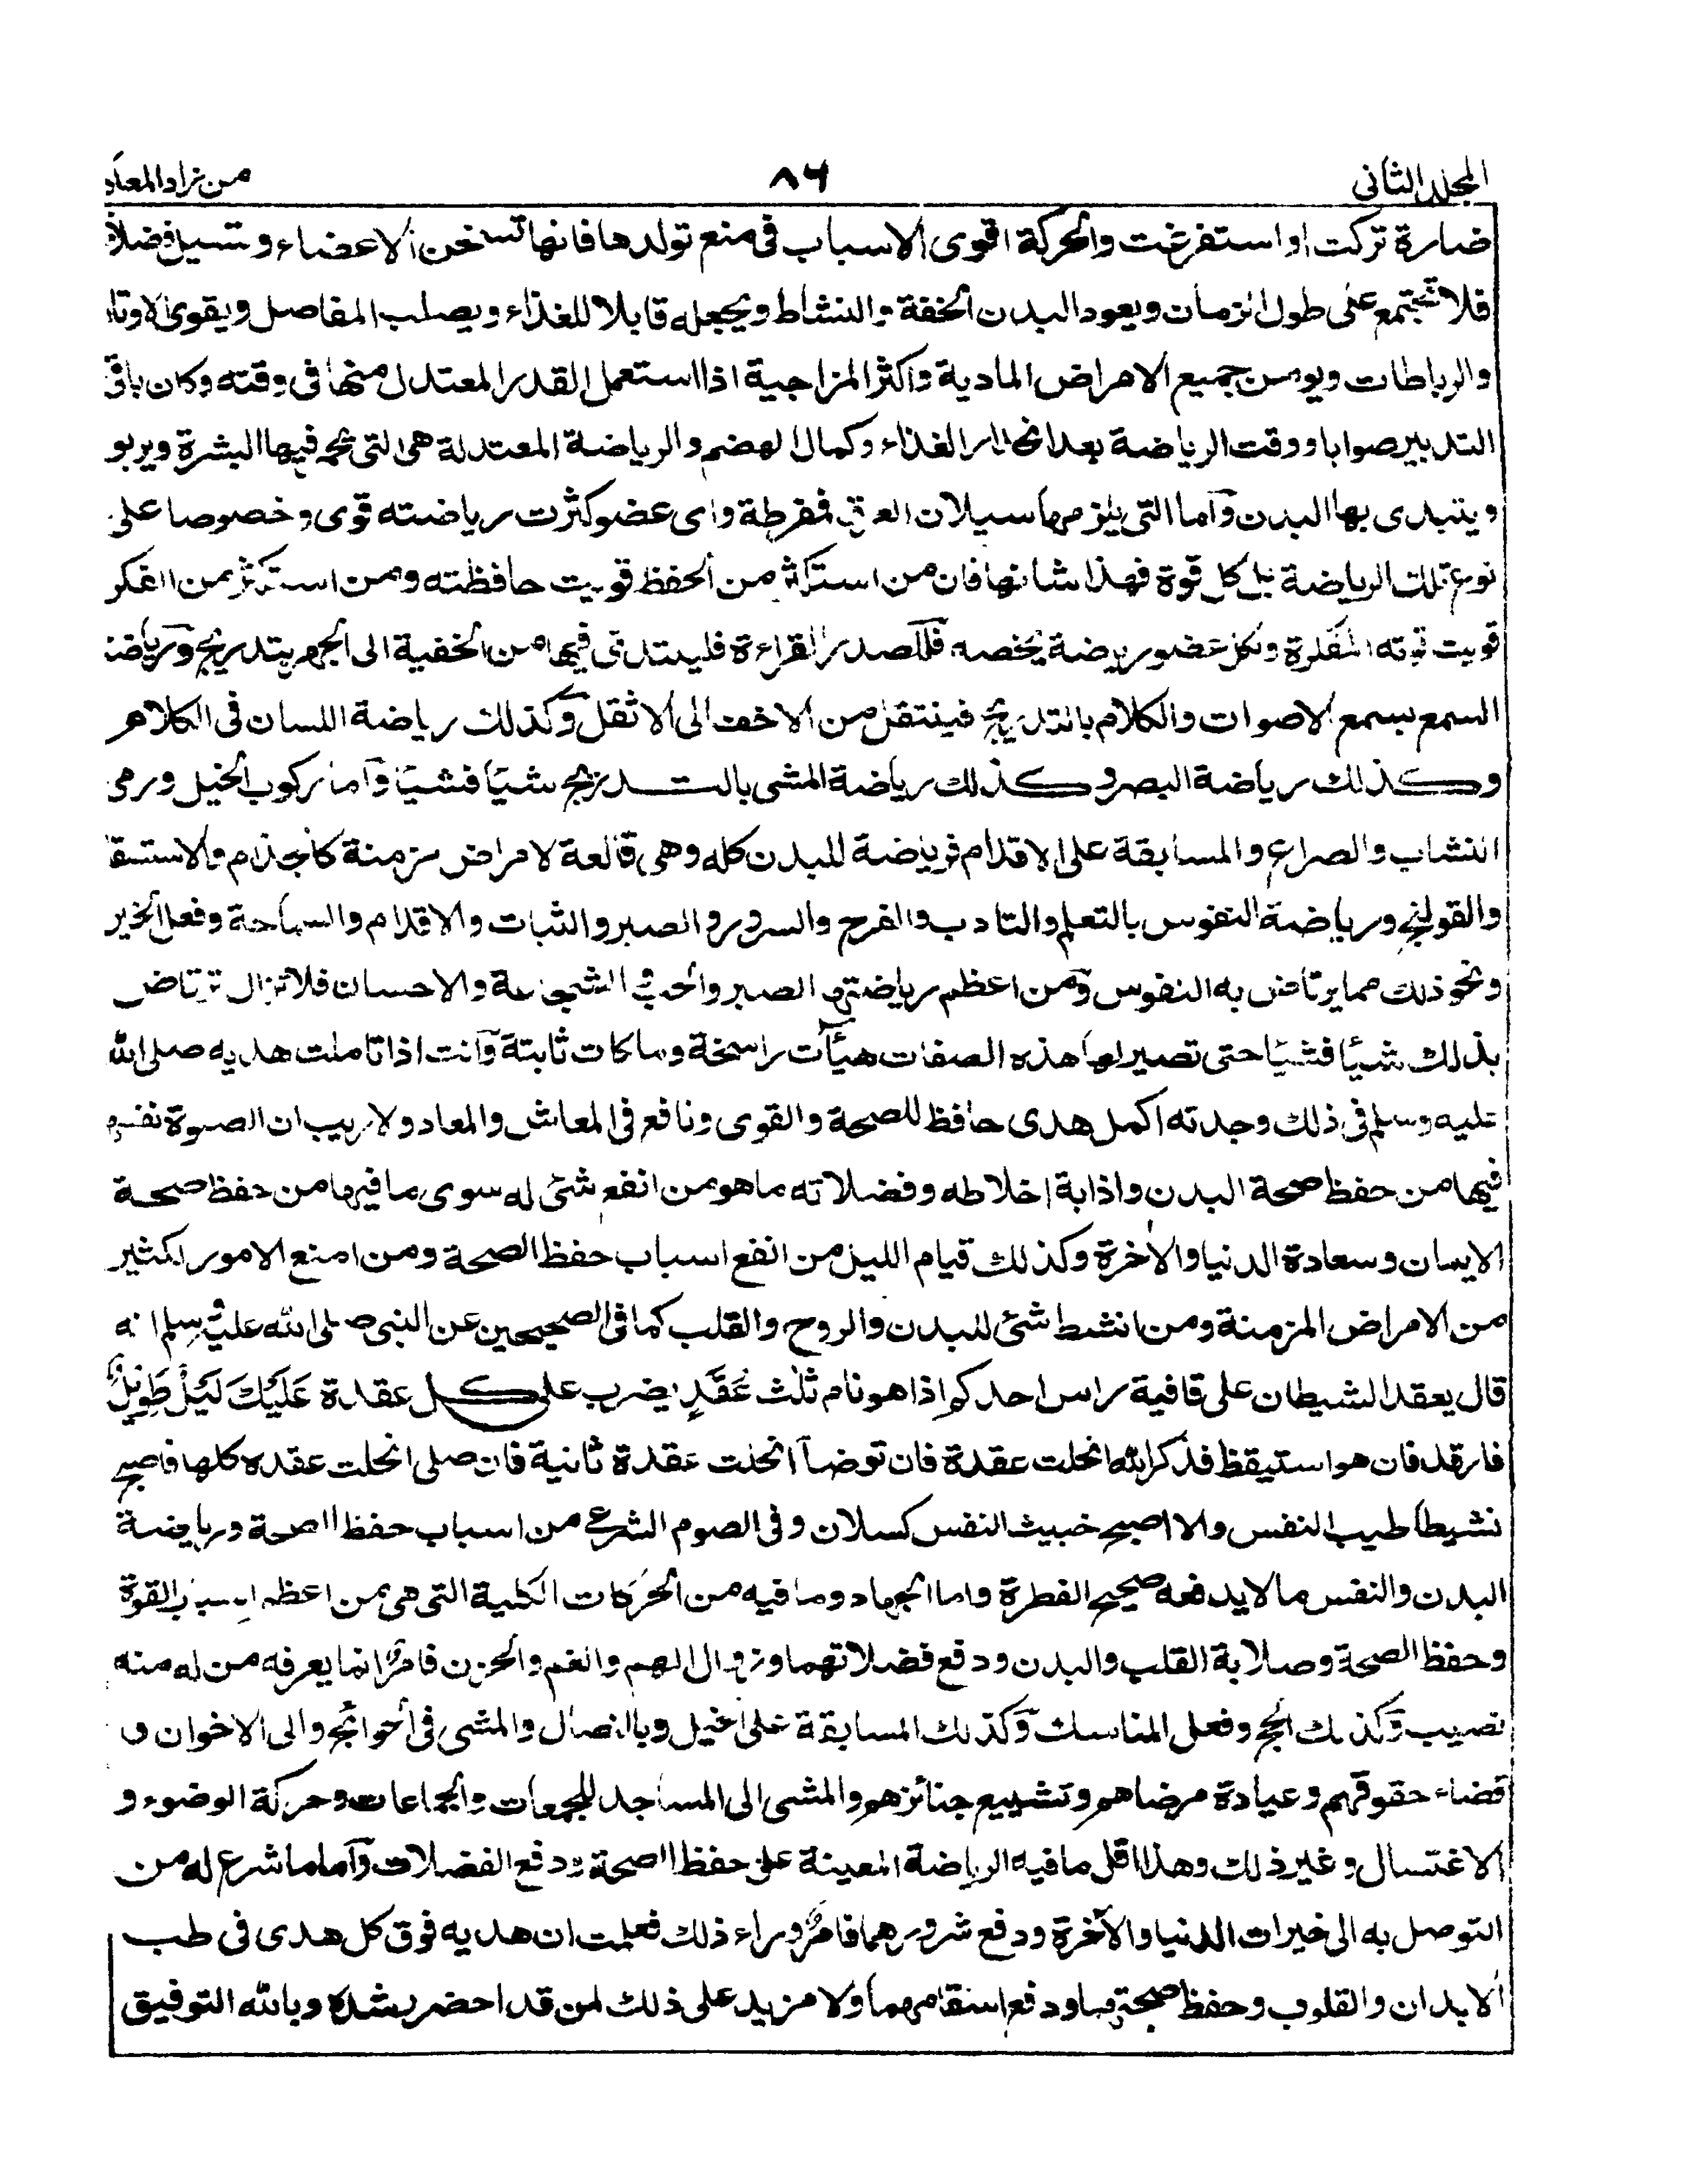 المجلد الثانى
٨٦
من زاد المعاد
ضارة تركت او استفرغت والحركة اقوى الاسباب فى منع تولدها فانها تسخن الاعضاء وتسيل فضلا
فلا تجتمع على طول الزمان ويعود البدن الخفة والنشاط ويجعله قابلا للغذاء ويصلب المفاصل ويقوى الاوتا
والرباطات ويومن جميع الامراض المادية واكثر المزاجية اذا استعمل القدر المعتدل منها فى وقته وكان باقى
التدبير صوابا ووقت الرياضة بعد انحدار الغذاء وكمال الهضم والرياضة المعتدلة هى التى تحمر فيها البشرة ويربو
ويتبدى بها البدن وآما التى يلزمها سيلان العرق فمفرطة واى عضو كثرت رياضته قوى وخصوصا على
نوع تلك الرياضة بل كل قوة فهذا شانها فان من استكثر من الحفظ قويت حافظته ومن استكثر من الفكر
قويت قوته المفكرة ولكل عضو رياضة يخصه فللصدر القراءة فليبتدئ فيها من الخفية الى الجهر بتدريج ورياضة
السمع بسمع الاصوات والكلام بالتدريج فينتقل من الاخف الى الاثقل وكذلك رياضة اللسان فى الكلام
وكذلك رياضة البصر وكذلك رياضة المشى بالتدريج شيئا فشيئا وآما ركوب الخيل ورمى
النشاب والصراع والمسابقة على الاقدام فرياضة للبدن كله وهى قالعة لامراض مزمنة كالجذام والاستسقا
والقولنج ورياضة النفوس بالتعلم والتادب والفرح والسرور والصبر والثبات والاقدام والسماحة وفعل الخير
ونحو ذلك مما يرتاض به النفوس ومن اعظم رياضتها الصبر والحب والشجاعة والاحسان فلا تزال ترتاض
بذلك شيئا فشيئا حتى تصير لها هذه الصفات هيآت راسخة وملكات ثابتة وآنت اذا تاملت هديه صلى الله
عليه وسلم فى ذلك وجدته اكمل هدى حافظ للصحة والقوى ونافع فى المعاش والمعاد ولا ريب ان الصلوة نفسها
فيها من حفظ صحة البدن واذابة اخلاطه وفضلاته ما هو من انفع شئ له سوى ما فيها من حفظ صحة
الايمان وسعادة الدنيا والآخرة وكذلك قيام الليل من انفع اسباب حفظ الصحة ومن امنع الامور لكثير
من الامراض المزمنة ومن انشط شئ للبدن والروح والقلب كما فى الصحيحين عن النبى صلى الله عليه وسلم انه
قال يعقد الشيطان على قافية راس احدكم اذا هو نام ثلث عُقَدٍ يضرب على كل عقدة عَلَيْكَ لَيْلٌ طَوِيْلٌ
فارقد فان هو استيقظ فذكر الله انحلت عقدة فان توضأ انحلت عقدة ثانية فان صلى انحلت عقده كلها فاصبح
نشيطا طيب النفس والا اصبح خبيث النفس كسلان وفى الصوم الشرعى من اسباب حفظ الصحة ورياضة
البدن والنفس ما لا يدفعه صحيح الفطرة واما الجهاد وما فيه من الحركات الكلية التى هى من اعظم اسباب القوة
وحفظ الصحة وصلابة القلب والبدن ودفع فضلاتهما وزوال الهم والغم والحزن فامر انما يعرفه من له منه
نصيب وكذلك الحج وفعل المناسك وكذلك المسابقة على الخيل وبالنصال والمشى فى الحوائج والى الاخوان و
قضاء حقوقهم وعيادة مرضاهم وتشييع جنائزهم والمشى الى المساجد للجمعات والجماعات وحركة الوضوء و
الاغتسال وغير ذلك وهذا اقل ما فيه الرياضة المعينة على حفظ الصحة ودفع الفضلات وآما ما شرع له من
التوصل به الى خيرات الدنيا والآخرة ودفع شرورهما فامر وراء ذلك فعلمت ان هديه فوق كل هدى فى طب
الابدان والقلوب وحفظ صحتهما ودفع اسقامهما ولا مزيد على ذلك لمن قد احضر رشده وبالله التوفيق